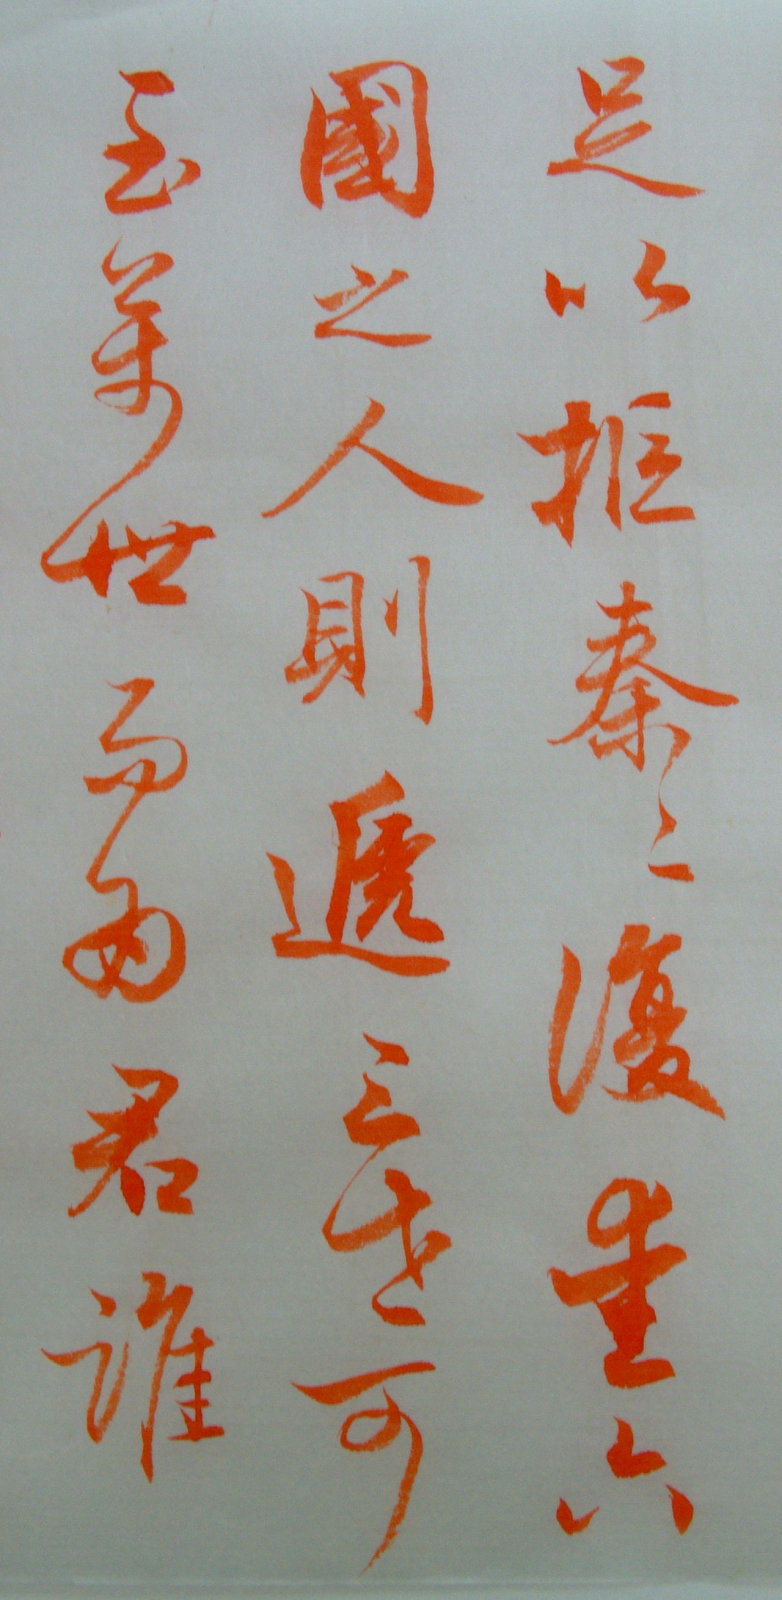 足以拒秦〻復愛六
國之人則遞三世可
至萬世而為君誰